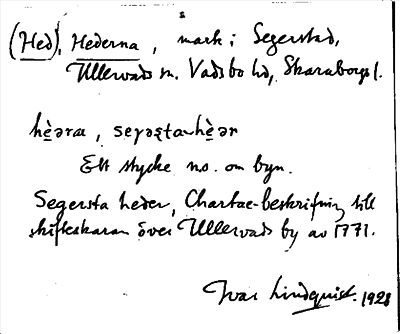 (Hed), Hederna, mark i Segerstad,
Ullervads sn. Vadsbo hd, Skaraborgs l.
hèəra, seɣəʂtahèər
Ett stycke no. om byn.
Segersta heder, Chartae-beskrifning till
skifteskartan över Ullervads by av 1771.
Ivar Lindquist. 1928